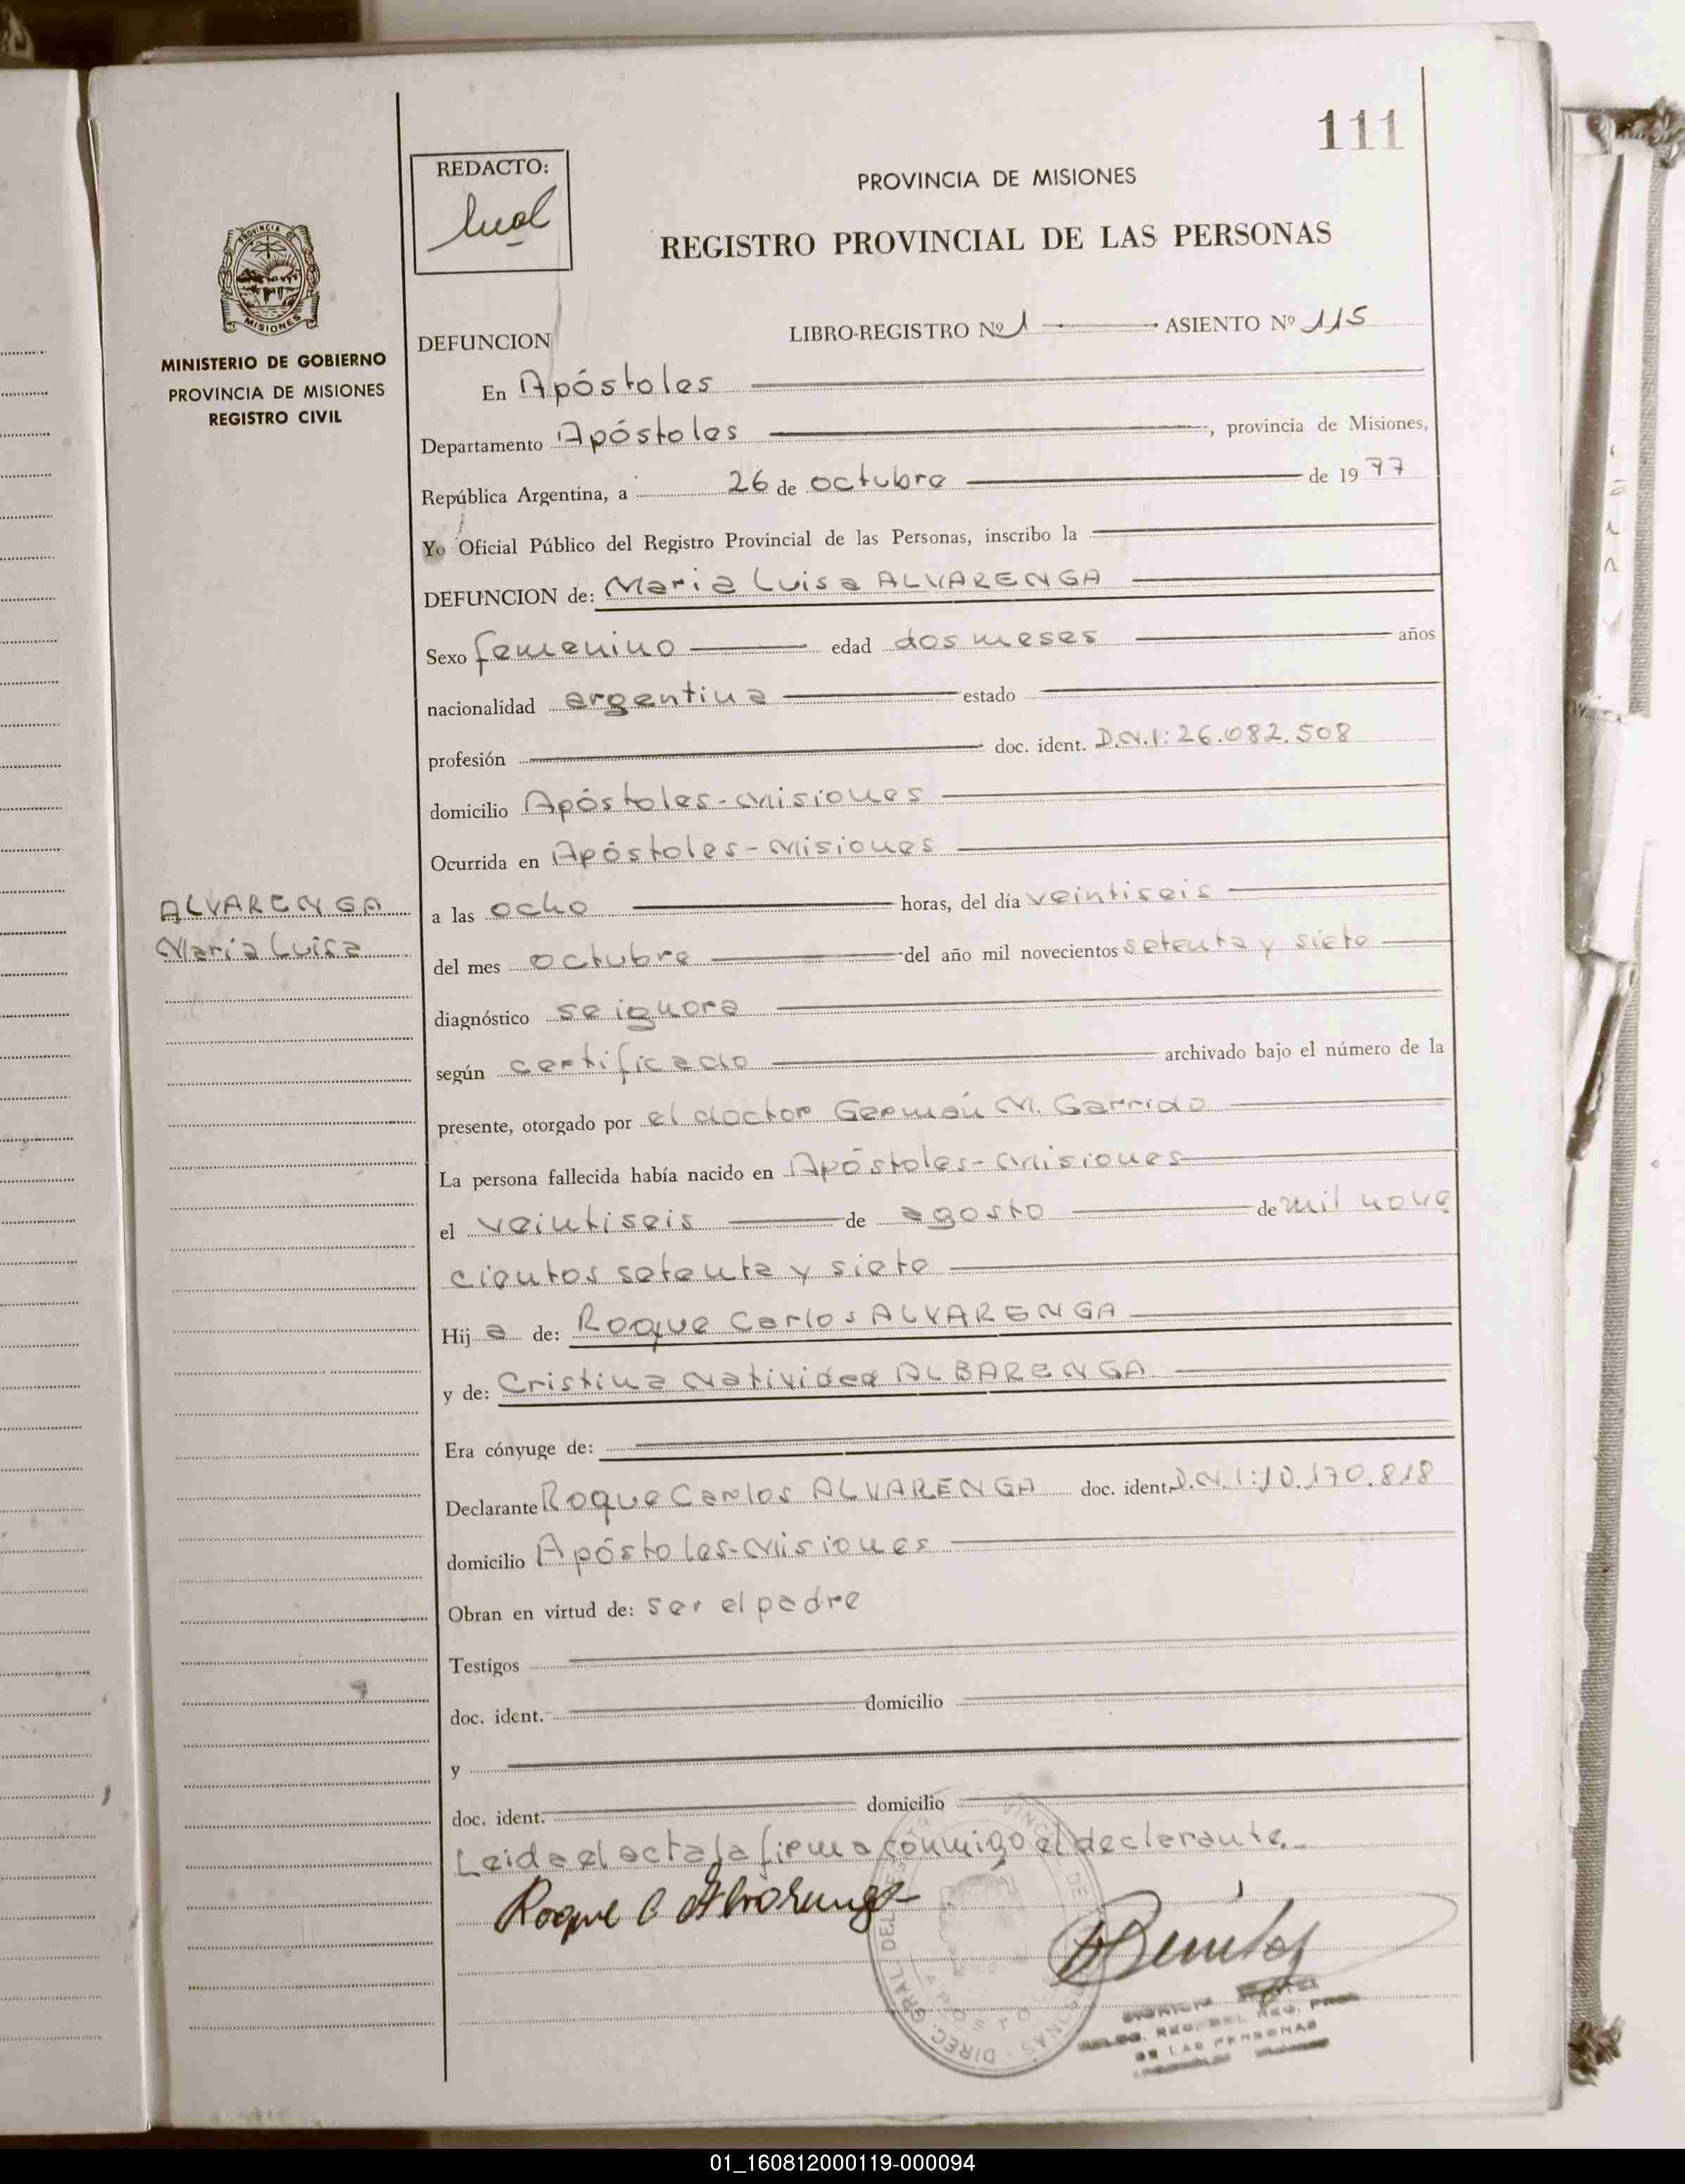 111
REDACTO:
PROVINCIA DE MISIONES
REGISTRO PROVINCIAL DE LAS PERSONAS
PROVINCIA DE
MISIONES
MINISTERIO DE GOBIERNO
PROVINCIA DE MISIONES
REGISTRO CIVIL
DEFUNCION
LIBRO-REGISTRO Nº 1 ASIENTO Nº 115
En Apóstoles
Departamento Apóstoles, provincia de Misiones,
República Argentina, a 26 de octubre de 1977
Yo Oficial Público del Registro Provincial de las Personas, inscribo la
DEFUNCION de: Maria Luisa ALVARENGA
Sexo femenino edad dos meses años
nacionalidad argentina estado
profesión doc. ident. D.N.I: 26.082.508
domicilio Apóstoles-Misiones
Ocurrida en Apóstoles-Misiones
ALVARENGA
María Luisa
a las ocho horas, del día veintiseis
del mes octubre del año mil novecientos setenta y siete
diagnóstico se ignora
según certificado archivado bajo el número de la
presente, otorgado por el doctor Germán M. Garrido
La persona fallecida había nacido en Apóstoles-Misiones
el veintiseis de agosto de mil nove
cientos setenta y siete
Hij a de: Roque Carlos ALVARENGA
y de: Cristina Natividad ALBARENGA
Era cónyuge de:
Declarante Roque Carlos ALVARENGA doc. ident. D.N.I: 10.170.818
domicilio Apóstoles-Misiones
Obran en virtud de: ser el padre
Testigos
doc. ident. domicilio
y
doc. ident. domicilio
Leida el acta la firma conmigo el declarante.-
Roque C Alvarenga
DE LAS PERSONAS
01_160812000119-000094